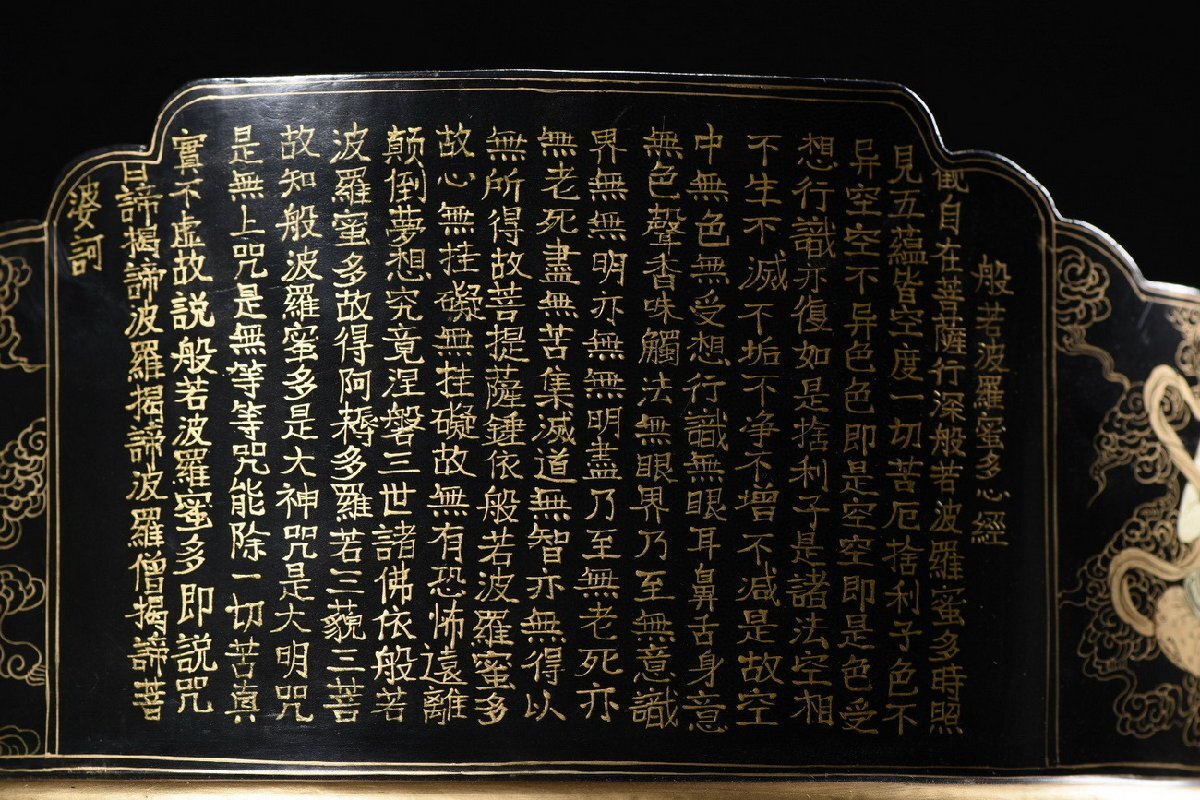 般若波羅蜜多心經
觀自在菩薩行深般若波羅蜜多時照
見五蘊皆空度一切苦厄捨利子色不
异空空不异色色即是空空即是色受
想行識亦復如是捨利子是諸法空相
不生不滅不垢不净不增不减是故空
中無色無受想行識無眼耳鼻舌身意
無色聲香味觸法無眼界乃至無意識
界無無明亦無無明盡乃至無老死亦
無老死盡無苦集滅道無智亦無得以
無所得故菩提薩錘依般若波羅蜜多
故心無挂礙無挂礙故無有恐怖遠離
顛倒夢想究竟涅磐三世諸佛依般若
波羅蜜多故得阿耨多羅若三藐三菩
故知般波羅蜜多是大神咒是大明咒
是無上咒是無等等咒能除一切苦真
實不虛故説般若波羅蜜多即説咒
曰諦揭諦波羅揭諦波羅僧揭諦菩
婆訶